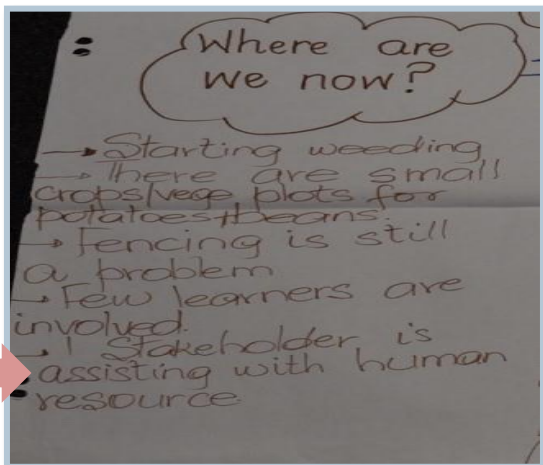 Where are
we now?
→ Starting weeding
→ There are small
crops/vege plots for
potatoes+beans.
→ Fencing is still
a problem
→ Few learners are
involved.
→ 1 Stakeholder is
assisting with human
resource